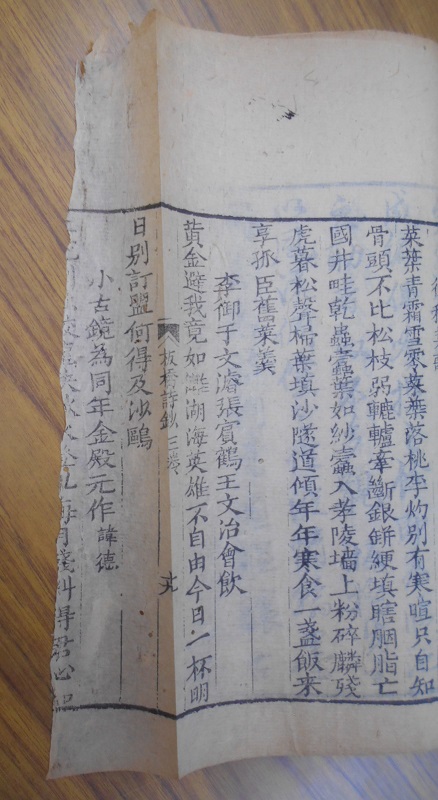 菜葉青霜雪寒菜葉落桃李灼別有寒暄只自知
骨頭不比松枝弱轆轤牽斷銀缾綆填瞎胭脂亡
國井畦乾蟲蠹葉如紗蠹入孝陵墻上粉碎麟殘
虎暮松聲掃葉填沙隧道傾年年寒食一盞飯來
享孤臣舊菜羹
李御于文濬張賓鶴王文治會飲
黃金避我竟如讎湖海英雄不自由今日一杯明
板橋詩鈔 三卷 十九
日別訂盟何得及沙鷗
小古鏡為同年金殿元作 諱德
料得君心如